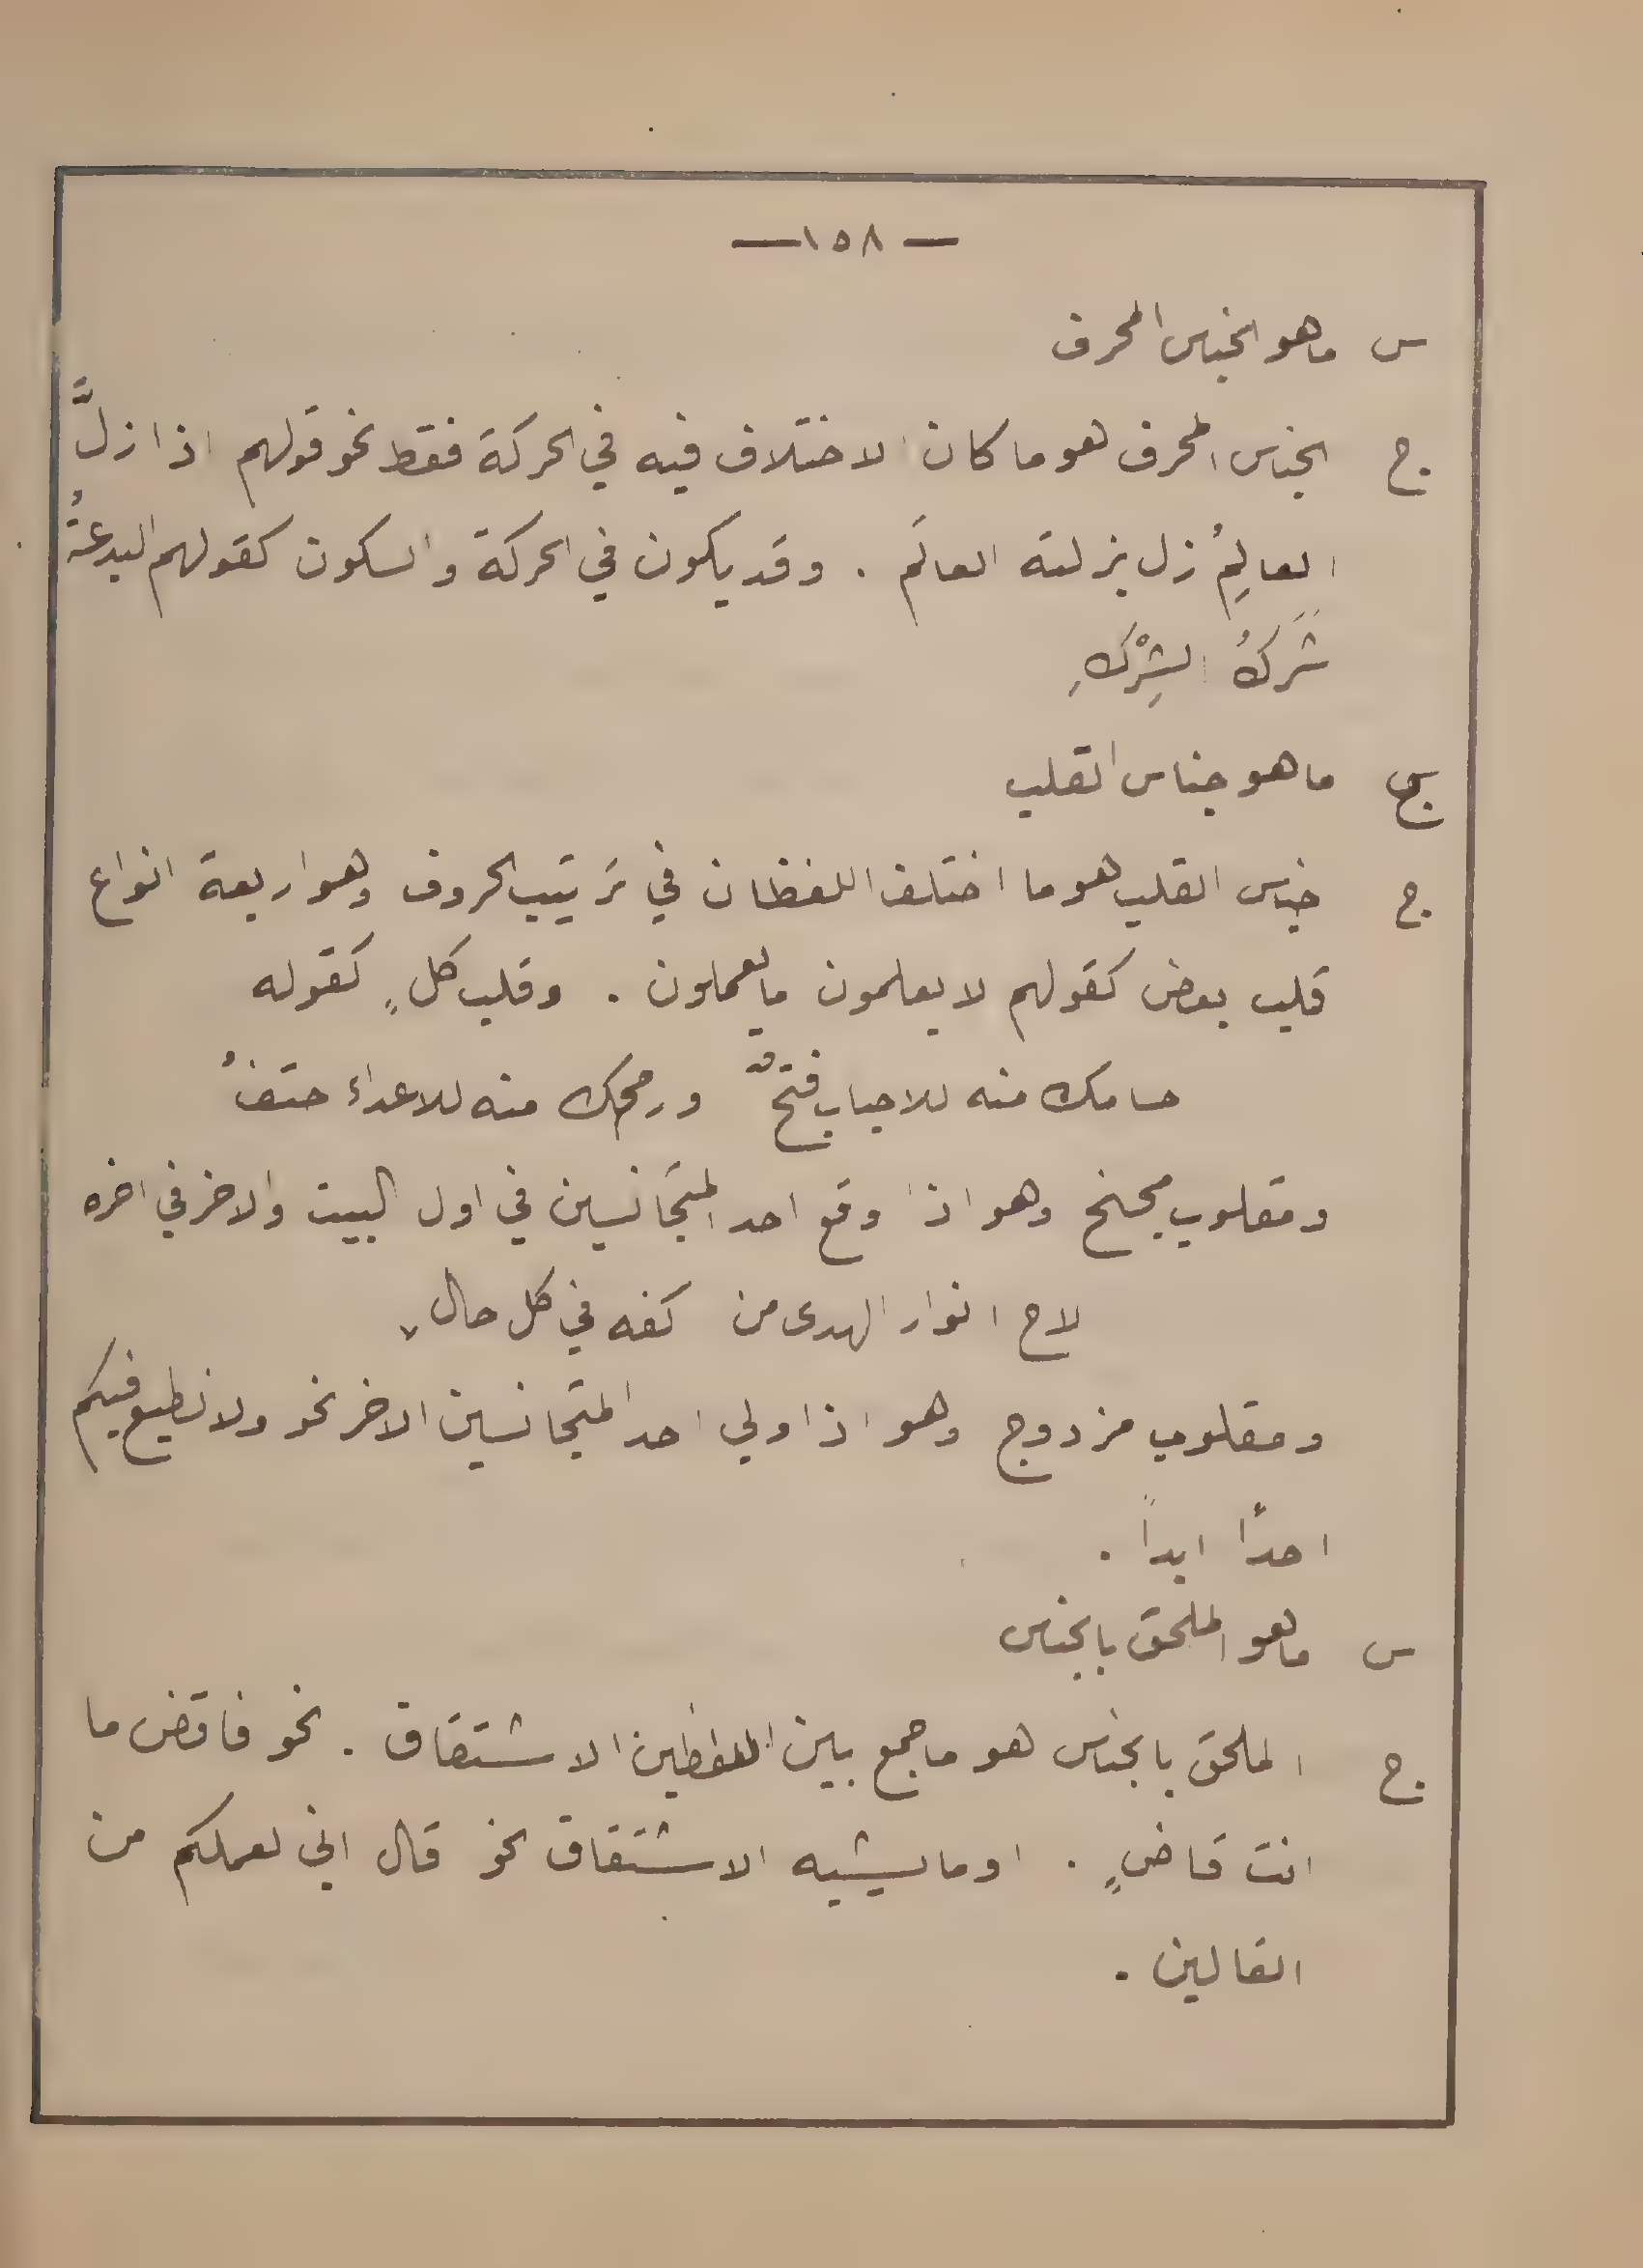 — ١٥٨ —
س ما هو الجناس المحرف
ج الجناس المحرف هو ما كان الاختلاف فيه في الحركة فقط نحو قولهم اذا زلَّ
العالِمُ زل بزلته العالَم . وقد يكون في الحركة والسكون كقولهم البدعةُ
شَرَكُ الشِرْكِ
س ما هو جناس القلب
ج جناس القلب هو ما اختلف اللفظان في ترتيب الحروف وهو اربعة انواع
قلب بعض كقولهم لا يعلمون ما يعملون . وقلب كلٍ كقوله
حسامك منه للاحباب فتحٌ ورمحك منه للاعداء حتفُ
ومقلوب مجنح وهو اذا وقع احد المتجانسين في اول البيت والاخر في اخره
لاح انوار الهدى من كفه في كل حال
ومقلوب مزدوج وهو اذا ولي احد المتجانسين الاخر نحو ولا نطيع فيكم
احدًا ابداً .
س ما هو الملحق بالجناس
ج الملحق بالجناس هو ما جمع بين اللفظين الاشتقاق . نحو فاقض ما
انت قاضٍ . او ما يشبه الاشتقاق نحو قال اني لعملكم من
القالين .